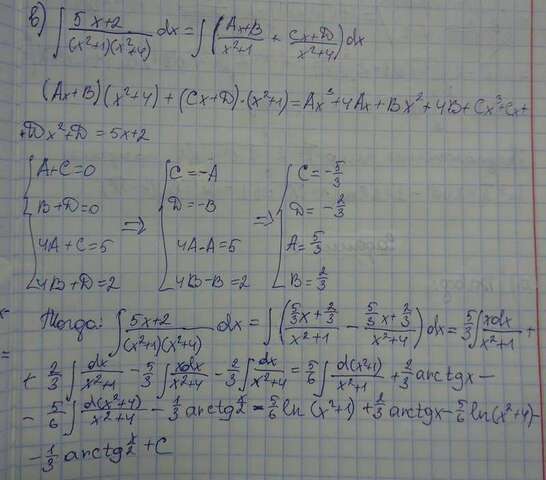 б) ∫ (5x+2)/((x²+1)(x²+4)) dx = ∫ ((Ax+B)/(x²+1) + (Cx+D)/(x²+4)) dx
(Ax+B)(x²+4)+(Cx+D)·(x²+1)=Ax³+4Ax+Bx²+4B+Cx³+Cx+
+Dx²+D=5x+2
{ A+C=0 { C=-A { C=-5/3
{ B+D=0 { D=-B { D=-2/3
⇒ ⇒
{ 4A+C=5 { 4A-A=5 { A=5/3
{ 4B+D=2 { 4B-B=2 { B=2/3
Тогда: ∫ (5x+2)/((x²+1)(x²+4)) dx = ∫ ((5/3x+2/3)/(x²+1) - (5/3x+2/3)/(x²+4)) dx = 5/3 ∫ xdx/(x²+1) +
+ 2/3 ∫ dx/(x²+1) - 5/3 ∫ xdx/(x²+4) - 2/3 ∫ dx/(x²+4) = 5/6 ∫ d(x²+1)/(x²+1) + 2/3 arctgx -
- 5/6 ∫ d(x²+4)/(x²+4) - 1/3 arctg x/2 = 5/6 ln(x²+1) + 2/3 arctgx - 5/6 ln(x²+4) -
- 1/3 arctg x/2 + C